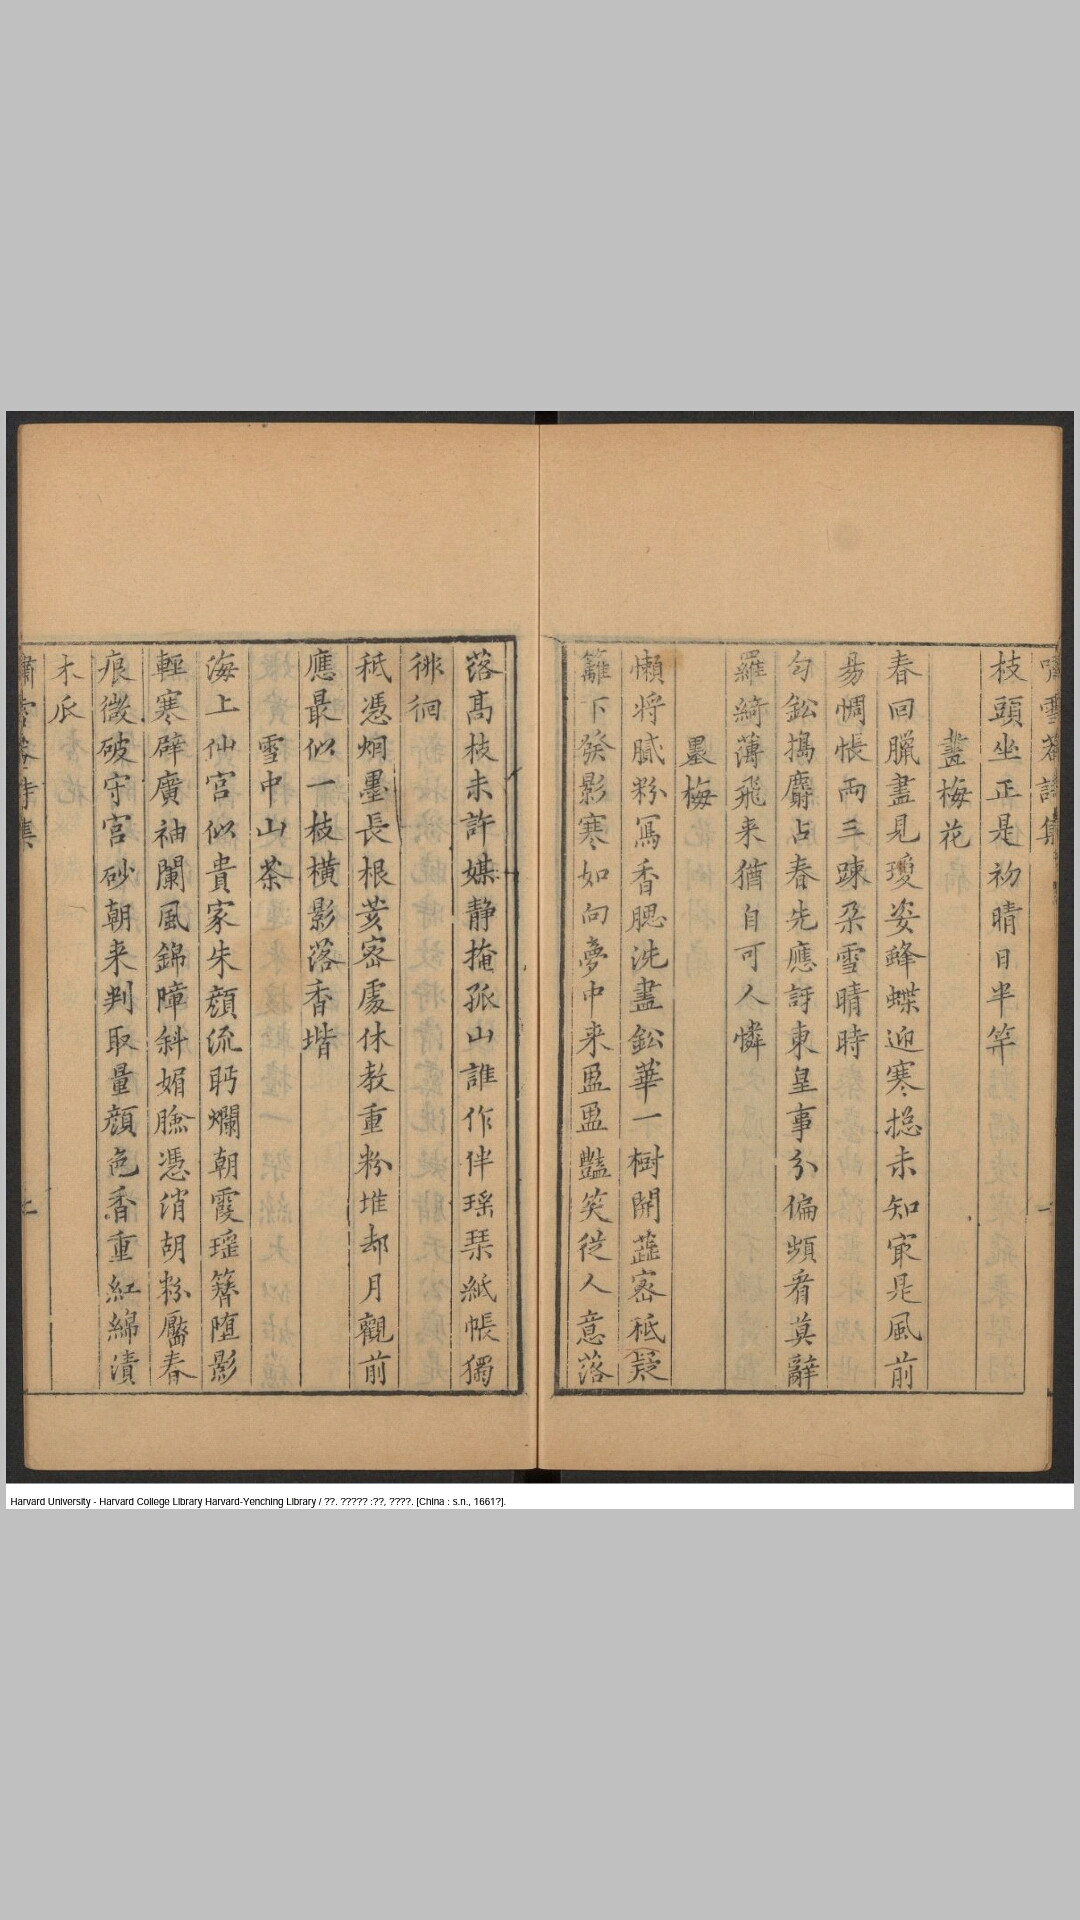 枝頭坐正是初晴日半竿
畫梅花
春回臘盡見瓊姿蜂蝶迎寒揔未知㝡是風前
易惆悵兩三踈朶雪晴時
勻鈆搗麝占春先應訝東皇事分偏頻看莫辭
羅綺薄飛来猶自可人憐
墨梅
懶將膩粉寫香腮洗盡鈆華一樹開蘂宻秪疑
籬下發影寒如向夢中来盈盈豔笑従人意落
落高枝未許媒静掩孤山誰作伴瑶琹紙帳獨
徘徊
秪憑烟墨長根荄宻處休教重粉堆却月觀前
應最似一枝橫影落香堦
雪中山茶
海上仙宫似貴家朱顔流眄爛朝霞瑶簪堕影
輕寒辟廣袖闌風錦障斜媚臉憑消胡粉靨春
痕微破守宫砂朝来判取量顔色香重紅綿漬
木瓜
Harvard University - Harvard College Library Harvard-Yenching Library / ??. ????? :??, ????. [China : s.n., 1661?].